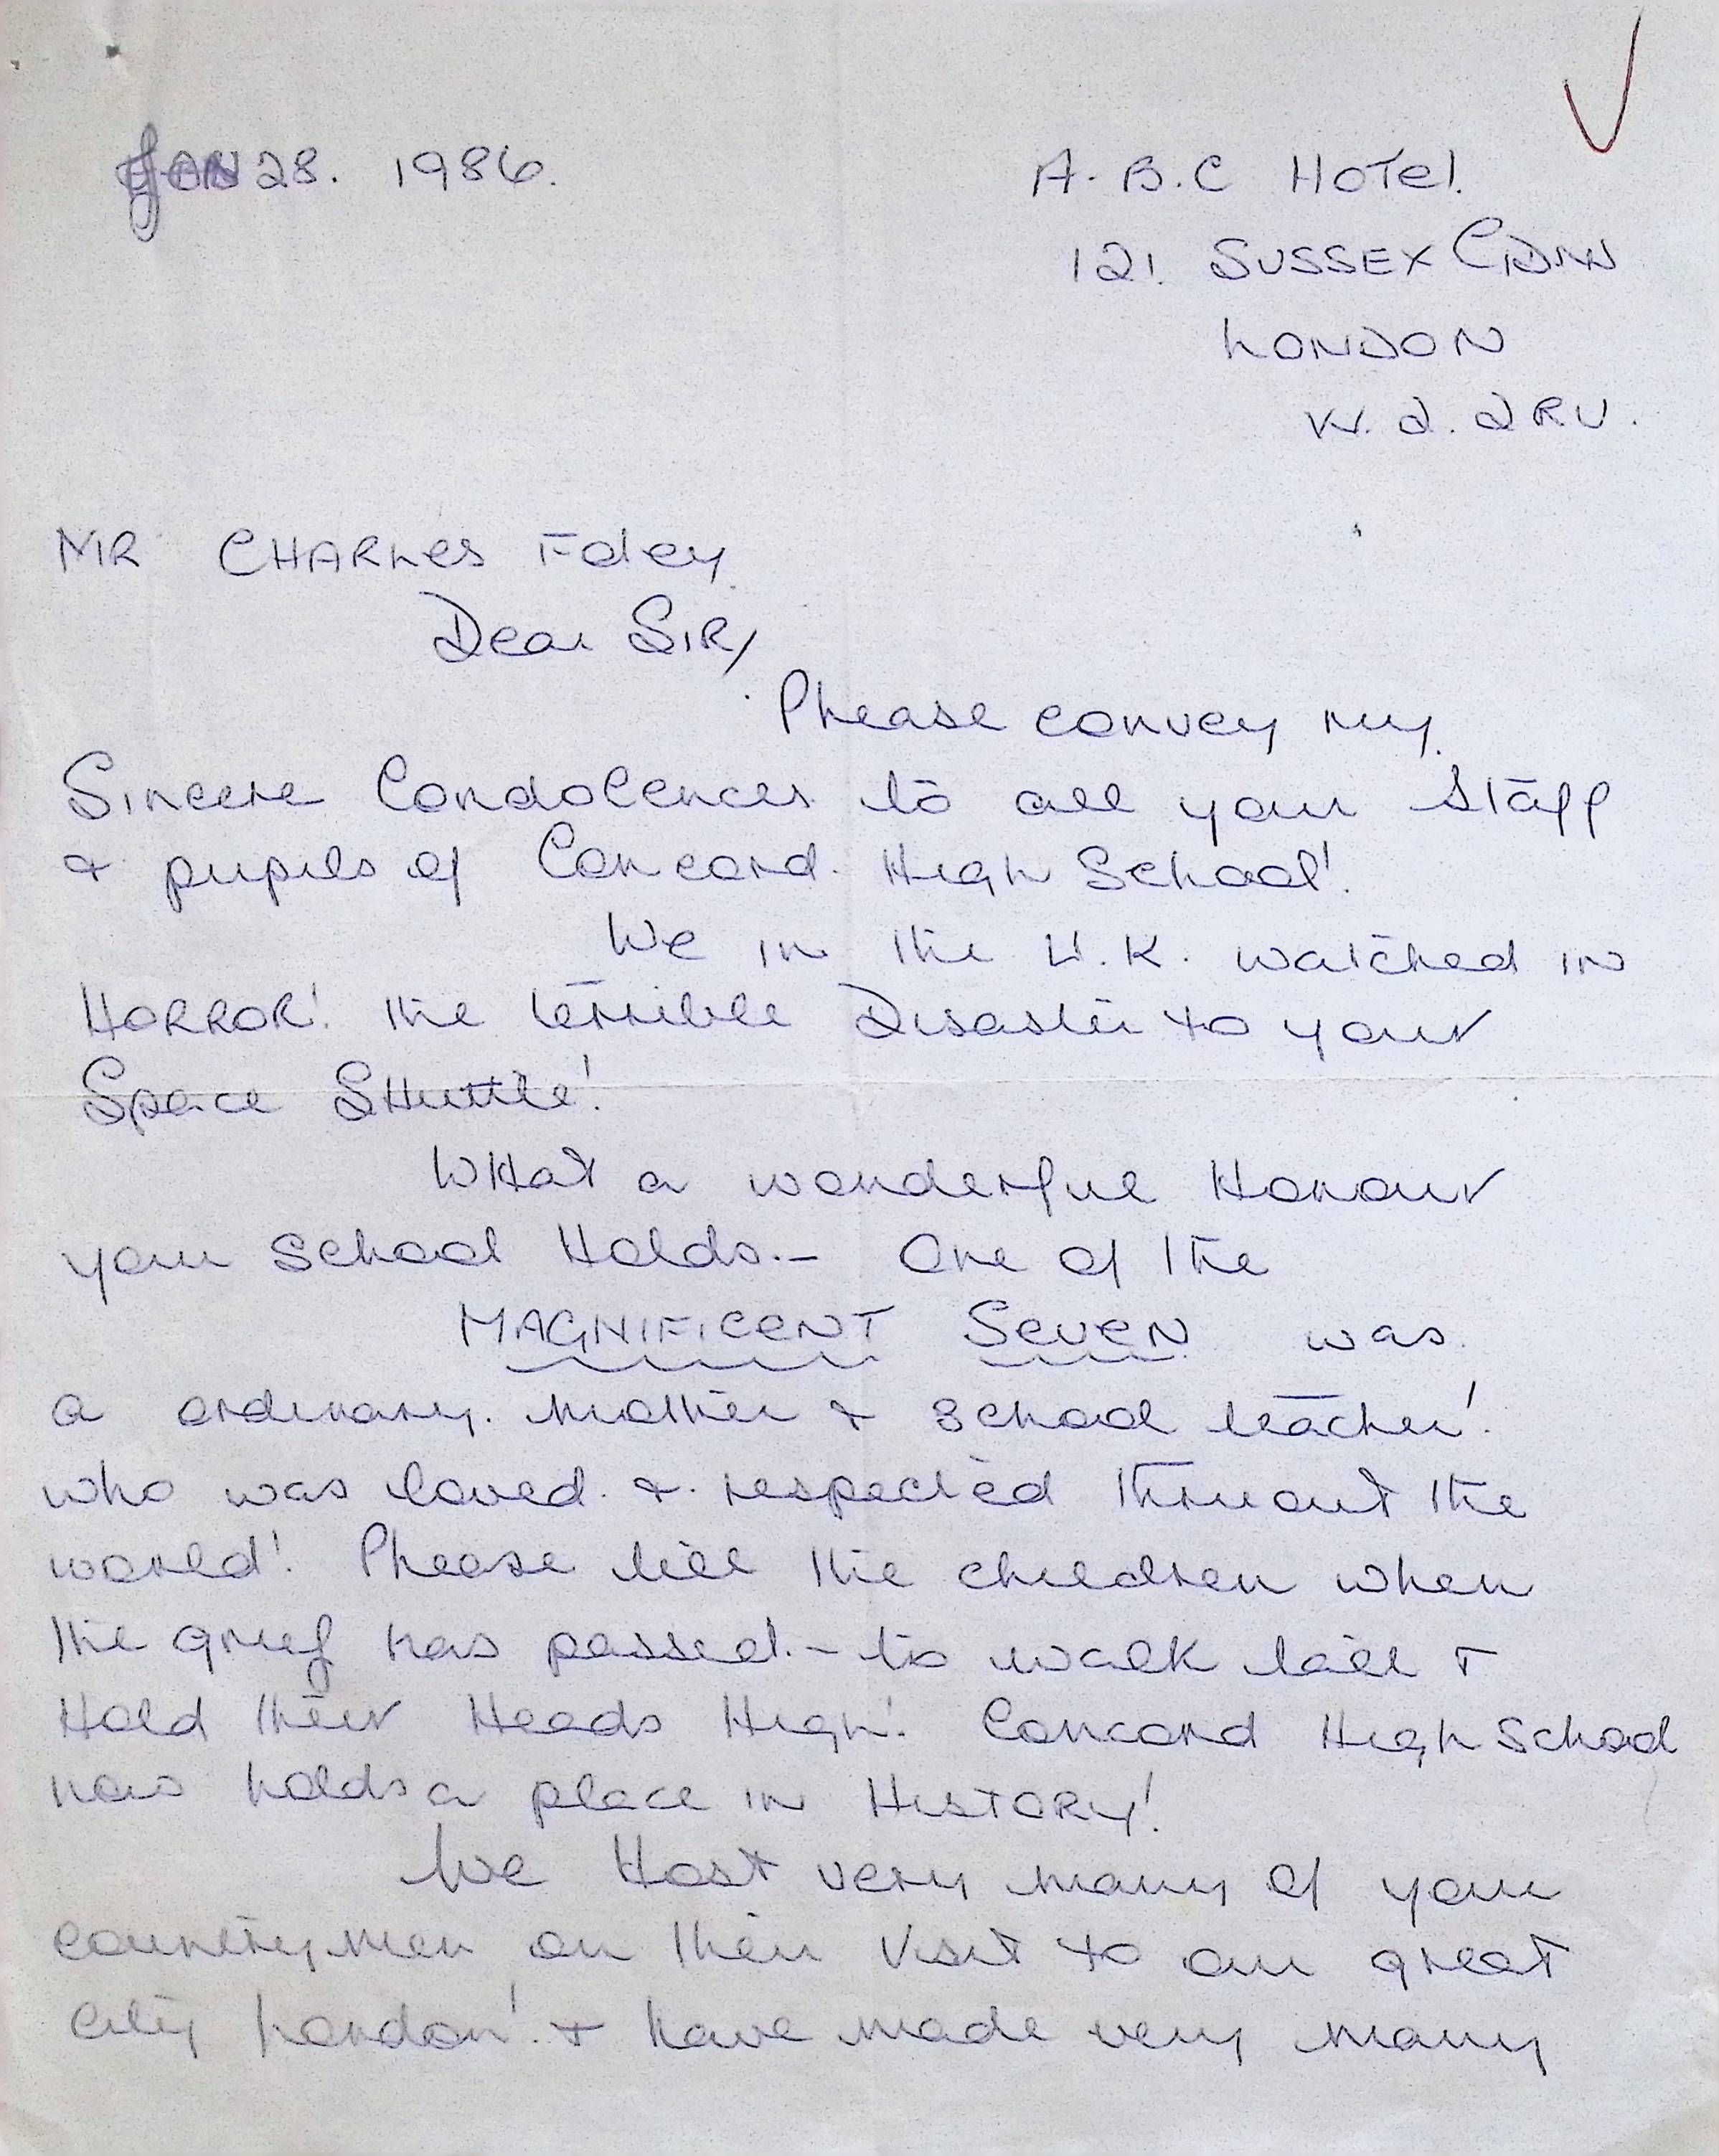 JAN 28. 1986.
A.B.C Hotel.
121. SUSSEX GDNS
LONDON
W.2. 2RU.
MR CHARLES Foley.
Dear SIR,
Please convey my
Sincere Condolences to all your staff
& pupils of Concord. High School!
We in the U.K. watched in
HORROR! the terrible Disaster to your
Space SHuttle!
WHat a wonderful Honour
your School Holds.- One of the
MAGNIFICENT SEVEN was
a ordinary. mother & school teacher!
who was loved. &. respected thruout the
world! Please tell the children when
the grief has passed.- to walk tall &
Hold their Heads High! Concord High School
now holds a place in HISTORY!
We Host very many of your
countrymen on their visit to our great
city London! & have made very many